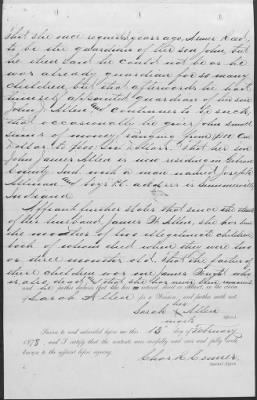 that she once requested years ago, Abner
to be the guardian of her son John but
he then said he could not be as he
was already guardian for so many
children, but that afterwards he had
himself appointed guardian of her son
John J. Allen and continues to be such,
that occasionally he gives John small
sums of money ranging from one
Dollar to five Dollars. That her son
John James Allen is now residing in
County Ind with a man named Joseph
and his P.O. address is
Indiana.
Affiant further states that since the death
of her husband, James Allen, she has been
the mother of two illegitimate children,
both of whom died when they were two
or three months old. That the father of
these children was one James who
is also dead, that she has never been married
and he further declares that he has no interest, direct or indirect, in the claim
of Sarah Allen for a Pension, and further saith not.
her
Sarah X Allen
mark
Sworn to and subscribed before me this 15 day of February
1878, and I certify that the contents were carefully and fully made
known to the affiant before signing.
Chas R.